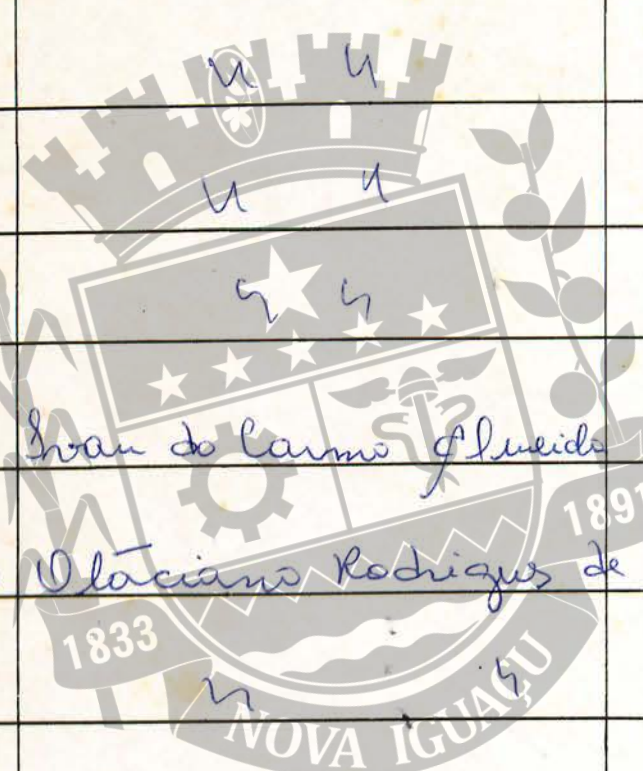 " "
" "
" "
Ivan do Carmo Almeida
Otaciano Rodrigues de
" "
1833
1891
NOVA IGUAÇU